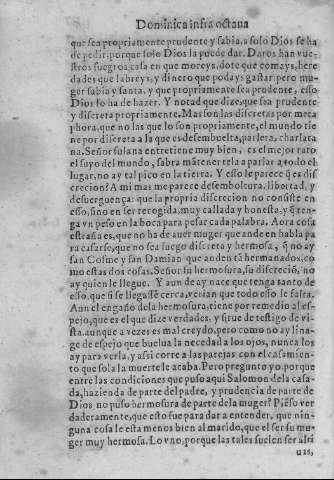 Dominica infra octaua
que sea propriamente prudente y sabia, a solo Dios se ha
de pedir, porque solo Dios la puede dar. Daros han vue-
stros suegros, casa en que moreys, dote que comays, here
dades que labreys, y dinero que podays gastar: pero mu-
ger sabia y santa, y que propriamente sea prudente, esso
Dios lo ha de hazer. Y notad que dize, que sea prudente
y discreta propriamente. Mas son las discretas por meta
phora, que no las que lo son propriamente, el mundo tie
ne por discreta a la que es desembuelta, parlera, charlata
na. Señor fulana entretiene muy bien, es el mejor rato
el suyo del mundo, sabra mãtener tela a parlar a todo el
lugar, no ay tal pico en la tierra. Y esso le parece q̃ es dis
crecion? A mi mas me parece desemboltura, libertad, y
desuerguença: que la propria discrecion no consiste en
esso, sino en ser recogida, muy callada y honesta, y q̃ ten-
ga vn peso en la boca para pesar cada palabra. Aora cosa
estraña es, que no ha de auer muger que ande en habla pa
ra casarse, que no sea luego discreta y hermosa, q̃ no ay
san Cosme y san Damian que anden tã hermanados, co
mo estas dos cosas. Señor su hermosura, su discreciõ, no
ay quien le llegue. Y aun de ay nace que tengan tanto de
esso, que si se llegasse cerca, verian que todo esso le falta.
Aun el engaño de la hermosura, tiene por remedio al es-
pejo, que es el que dize verdades, y sirue de testigo de vi-
sta, aunque a vezes es mal creydo, pero como no ay lina-
ge de espejo que buelua la necedad a los ojos, nunca los
ay para verla, y assi corre a las parejas con el casamien-
to que sola la muerte le acaba. Pero pregunto yo, porque
entre las condiciones que puso aqui Salomon de la casa-
da, hazienda de parte del padre, y prudencia de parte de
Dios, no puso hermosura de parte de la muger? Piẽso ver
daderamente, que esto fue para dar a entender, que nin-
guna cosa le esta menos bien al marido, que el ser su mu-
ger muy hermosa. Lo vno, porque las tales suelen ser alti
uas,